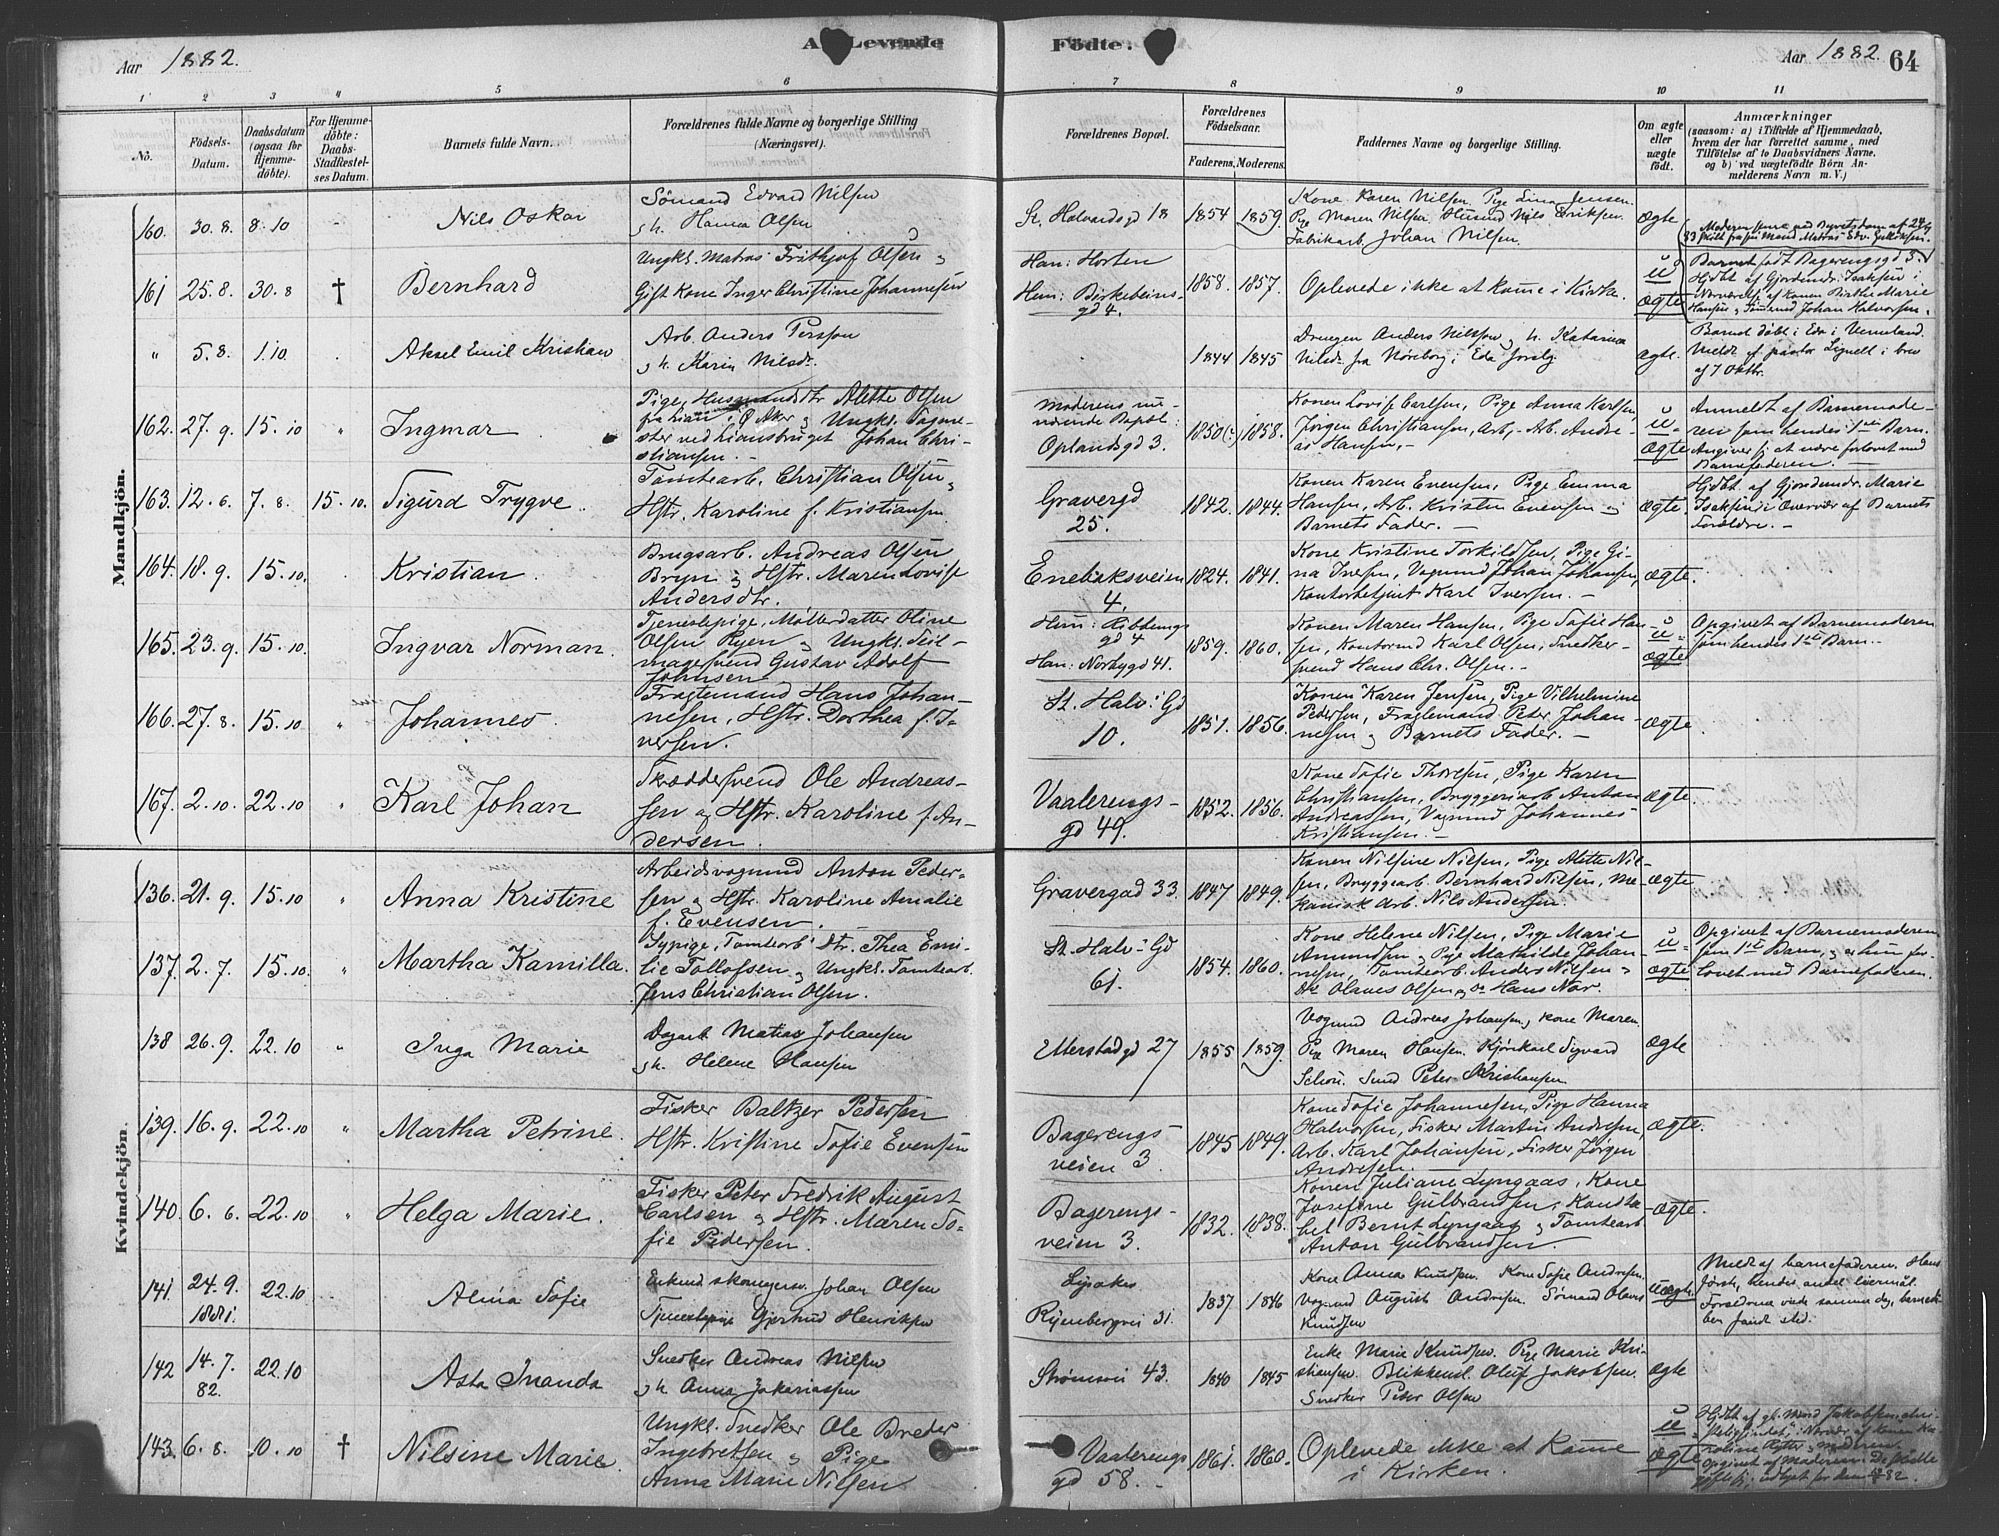 Aar 1882.
A. Levende
Födte.
Aar 1882. 64
1 2 3 4 5 6 7 8 9 10 11
No.
Födsels-Datum.
Daabsdatum (ogsaa for Hjemme-döbte).
For Hjemme-döbte: Daabs-Stadfæstel-ses Datum.
Barnets fulde Navn.
Forældrenes fulde Navne og borgerlige Stilling (Næringsvei).
Forældrenes Bopæl.
Forældrenes Födselsaar.
Faderens. Moderens.
Faddernes Navne og borgerlige Stilling.
Om ægte eller uægte födt.
Anmærkninger
(saasom: a) i Tilfælde af Hjemmedaab,
hvem der har forrettet samme, med
Tilföielse af to Daabsvidners Navne,
og b) ved uægtefödte Börn An-
melderens Navn m. V.)
Mandkjön.
160. 30.8. 8.10 Nils Oskar
Sömand Edvard Nilsen
og h. Hanna Olsen
St. Halvardsgd 18 1854 1859.
Kone Karen Nilsen, Pige Lina Jensen.
Pige Maren Nilsen Nils Eriksen.
Fabrikarb. Johan Nilsen.
ægte
161 25.8. 30.8 † Bernhard
Ungkl. Matros Frithjof Olsen og
Gift Kone Inger Christine Johannesen
Han: Horten
Hun: Birkebeins-
gd 4.
1858. 1857. Oplevede ikke at komme i Kirke.
u
ægte
Barnet født Bagerengsgd 3.
Hjdbt af Gjordemdr. Isaksen i
Nærvær af konen Birthe Marie
Hansen og Tømmermd Johan Halvorsen.
" 5.8. 1.10 Aksel Emil Kristian
Arb. Anders Persson
og h. Karin Nilsdr.
1844 1845
Drengen Anders Nilsson og h. Katarina
Nilsdr. fra i Eda
ægte.
Barnet döbt i Eda i Vermland.
Meldt af pastor Lignell i brev
af 7 Oktbr.
162. 27.9. 15.10 " Ingmar
Pige, Husmandsdtr Alette Olsen
fra Lian i Ø Aker og Ungkl.
ved Liansbruget Johan Chri-
stiansen. -
Moderens nu-
værende Bopæl:
Oplandsgd 3.
1850(?) 1858.
Konen Lovise Carlsen, Pige Anna Karlsen,
Jørgen Christiansen, Arb., Arb. Andre-
as Hansen, -
u-
ægte
Anmeldt af Barnemode-
ren som hendes 1ste Barn.
Angiver sig at være forlovet med
Barnefaderen. -
163. 12.6. 7.8. 15.10. Sigurd Trygve.
Tomtearb. Christian Olsen og
Hstr. Karoline f. Kristiansen.
Gravergd
25.
1842. 1844.
Konen Karen Evensen, Pige Emma
Hansen, Arb. Kristen Evensen og
Barnets Fader. -
ægte.
Hjdbt. af Gjordemdr. Marie
Isaksen i Overvær af Barnets
Forældre. -
164. 18.9. 15.10. Kristian.
Brugsarb. Andreas Olsen
Bryn og Hstr. Maren Lovise
Andersdtr.
Enebaksveien
4.
1824. 1841.
Kone Kristine Torkildsen, Pige Gi-
na Iversen, Vognmd Johan Johansen,
Kontorbetjent Karl Iversen. -
ægte.
165. 23.9. 15.10. Ingvar Norman.
Tjenestepige, Møllerdatter Oline
Olsen Ryen og Ungkl. Seil-
magersvend Gustav Adolf
Johnsen
Hun: Ribbungs
gd 4
Han: Norbygd 41.
1859. 1860.
Konen Maren Hansen, Pige Sofie Han-
sen, Kontormd Karl Olsen, Snedker-
svend Hans Chr. Olsen. -
u-
ægte
Opgivet af Barnemoderen
som hendes 1ste Barn. -
166. 27.8. 15.10 " Johannes.
Fragtemand Hans Johan-
nesen, Hstr. Dorthea f. I-
versen.
St. Halv: Gd
10.
1851. 1856.
Konen Karen Jensen, Pige Vilhelmine
Pedersen, Fragtemand Peter Johan-
nesen og Barnets Fader. -
ægte.
167. 2.10. 22.10 " Karl Johan
Skræddersvend Ole Andreas-
sen og Hstr. Karoline f. An-
dersen.
Vaalerengs-
gd 49.
1852. 1856.
Kone Sofie Thoresen, Pige Karen
Christiansen, Bryggeriarb Anton
Andreassen, Vognmd Johannes
Kristiansen. -
ægte.
Kvindekjön.
136. 21.9. 15.10 " Anna Kristine
Arbeidsvognmd Anton Peder-
sen og Hstr. Karoline Amalie
f. Evensen. -
Gravergad 33 1847 1849.
Konen Nilsine Nilsen, Pige Alette Nil-
sen, Bryggearb. Bernhard Nilsen, me-
kanisk Arb. Nils Andersen.
ægte
137. 2.7. 15.10. " Martha Kamilla.
Sypige, Tomtearb. dtr. Thea Emi-
lie Tollofsen og Ungkl. Tomtearb.
Jens Christian Olsen.
St. Halv: Gd
61.
1854. 1860.
Kone Helene Nilsen, Pige Marie
Amundsen og Pige Mathilde Johan-
nesen, Tomtearb. Anders Nilsen og
Do Olaves Olsen og Do Hans Nor.
u-
ægte
Opgivet af Barnemoderen
som 1ste Barn, og er hun for-
lovet med Barnefaderen.
138 26.9. 22.10 " Inga Marie
Dagarb Matias Johansen
og h. Helene Hansen
Etterstadgd 27 1855 1859.
Vognmd Andreas Johansen, kone Maren.
Pige Maren Hansen. Sigvard
Schou. Peter Kristiansen
ægte
139. 16.9. 22.10 " Martha Petrine.
Fisker Baltzer Pedersen
Hstr. Kristine Sofie Evensen
Bagerengs-
veien 3.
1845 1849.
Kone Sofie Johannesen, Pige Hanna
Halvorsen, Fisker Martin Andresen,
Arb. Karl Johansen, Fisker Jørgen
Andresen. -
ægte.
140. 6.6. 22.10 " Helga Marie.
Fisker Peter Fredrik August
Carlsen og Hstr. Maren So-
fie Pedersen.
Bagerengs-
veien 3.
1832. 1838.
Konen Juliane Lyngaas, Kone
Josefine Gulbrandsen,
Bernt Lyngaas og Tomtearb
Anton Gulbrandsen.
ægte.
141. 24.9 1881. 22.10 Alma Sofie
Enkemd skomagersv. Johan Olsen
Tjenestepige Gjertrud Henriksen
Lysaker
Ryenbergvei 31.
1837 1846
Kone Anna Knudsen. Kone Sofie Andresen.
Vognmd August Andresen. Sömand Olaves
Knudsen
uægte
Meldt af barnefaderen. Hans
første, hendes andet leiermål.
142 14.7. 82. 22.10 Asta Inanda
Snedker Andreas Nilsen
og h. Anna Jakariassen
Strømsvei 43. 1840 1845
Enke Marie Knudsen. Pige Marie Kri-
stiansen. Blikkensl. Oluf Jakobsen.
Snedker Peter Olsen
ægte
143. 6.8. 10.10 † Nilsine Marie.
Ungkl. Snedker Ole Breder
Ingebretsen og Pige
Anna Marie Nilsen.
Vaalerengs
gd 58. -
1861. 1860.
Oplevede ikke at komme
i Kirken.
u
ægte